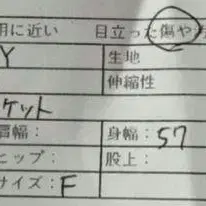 用に近い 目立った傷や
Y 生地
伸縮性
ケット
肩幅: 身幅: 57
ヒップ: 股上:
サイズ: F